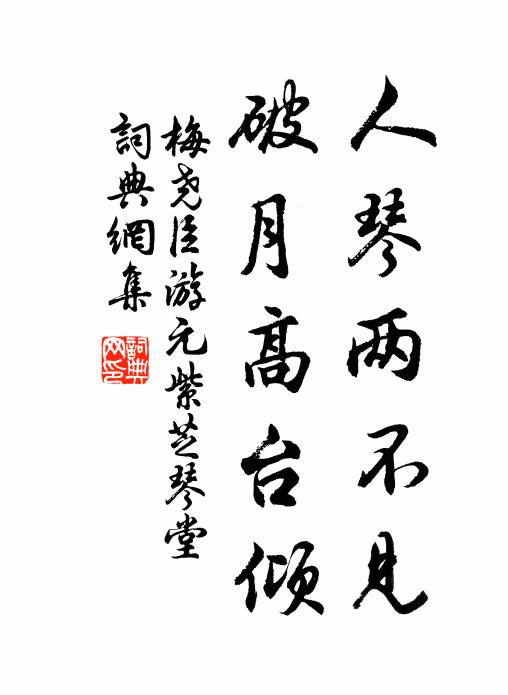 人琴两不见
破月高台倾
梅尧臣游元紫芝琴堂
詞典網集
詞典网印